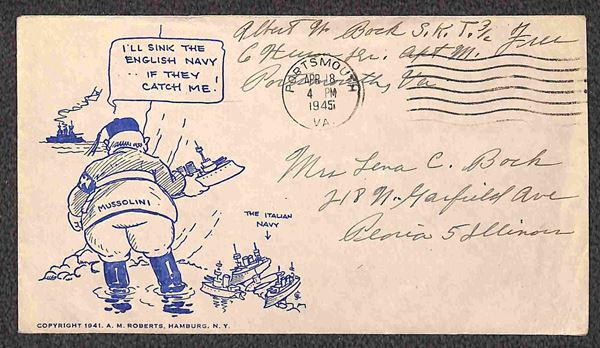 I'LL SINK THE
ENGLISH NAVY
... IF THEY
CATCH ME!
MUSSOLINI
THE ITALIAN
NAVY
COPYRIGHT 1941. A. M. ROBERTS, HAMBURG, N. Y.
Albert W. Bock S.K.T. 3/c
Free
Apt M.
Portsmouth, Va
PORTSMOUTH
APR 18
4 PM
1945
VA.
Mrs Lena C. Bock
218 N. Garfield Ave
Peoria 5 Illinois